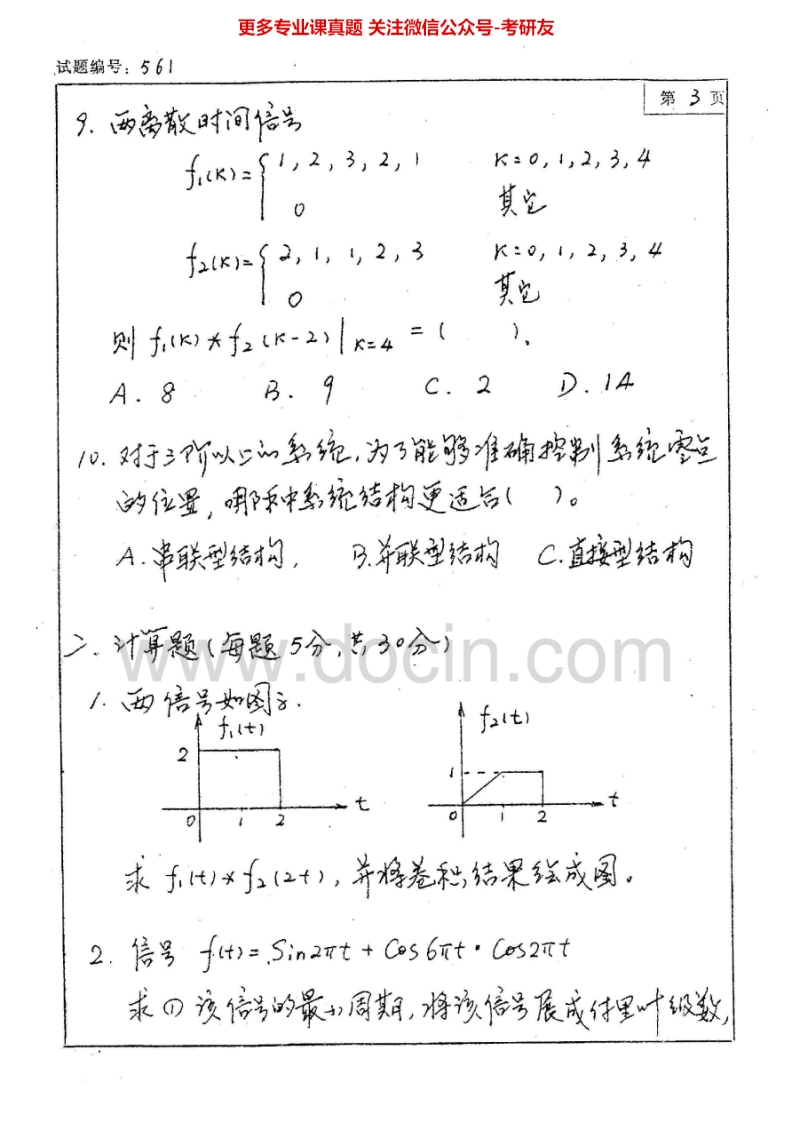 更多专业课真题 关注微信公众号-考研友
试题编号: 561
第 3 页
9. 两离散时间信号
f₁(K)={1, 2, 3, 2, 1 K=0, 1, 2, 3, 4
0 其它
f₂(K)={2, 1, 1, 2, 3 K=0, 1, 2, 3, 4
0 其它
则 f₁(K)*f₂(K-2)|K=4 = ( ).
A. 8 B. 9 C. 2 D. 14
10. 对于三阶以上的系统,为了能够准确控制系统零点
的位置,哪种系统结构更适合( )。
A.串联型结构, B.并联型结构 C.直接型结构
二、计算题(每题5分,共30分)
www.docin.com
1. 两信号如图示.
f₁(t) f₂(t)
2 1
0 1 2 t 0 1 2 t
求 f₁(t)*f₂(2t),并将卷积结果绘成图。
2. 信号 f(t)=Sin2πt + Cos6πt·Cos2πt
求① 该信号的最小周期,将该信号展成付里叶级数,